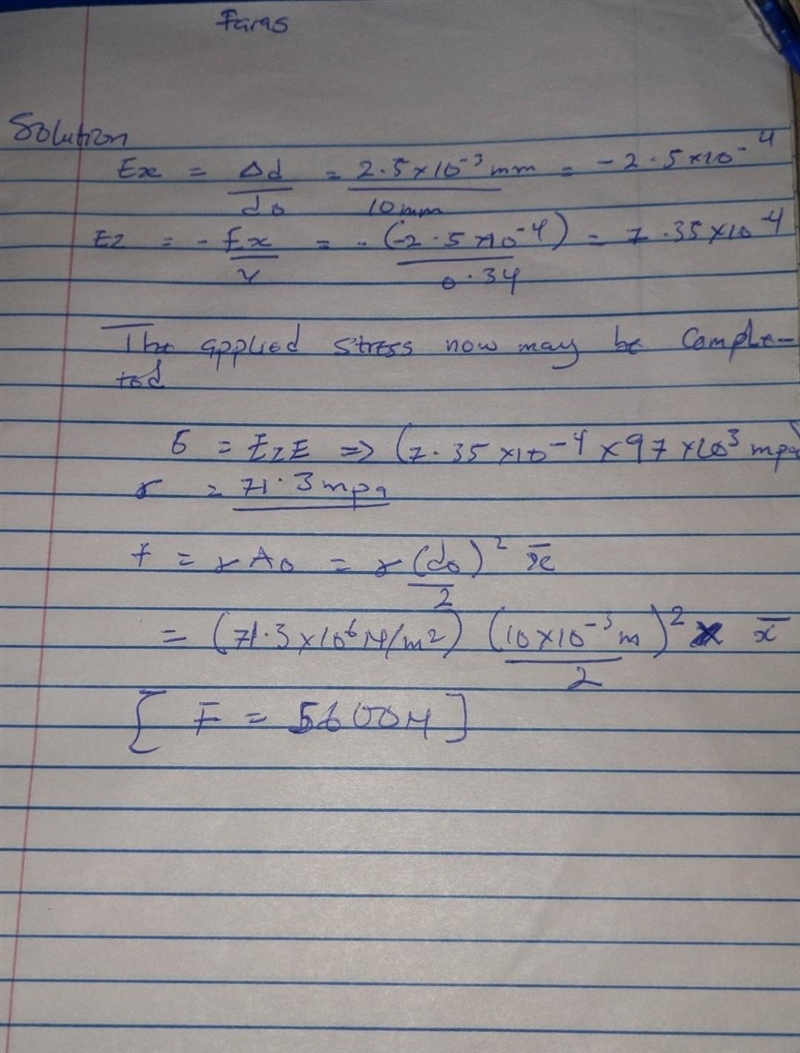 Faras
Solution
Ex = Δd/do = 2.5×10⁻³mm/10mm = -2.5×10⁻⁴
Ez = -Ex/v = -(-2.5×10⁻⁴)/0.34 = 7.35×10⁻⁴
The applied stress now may be Comple-
ted
6 = EzE => (7.35×10⁻⁴×97×10³mpa)
r = 71.3mpa
f = rAo = r(do/2)² x̄
= (71.3×10⁶N/m²) (10×10⁻³m/2)² x̄
[F = 5600N]